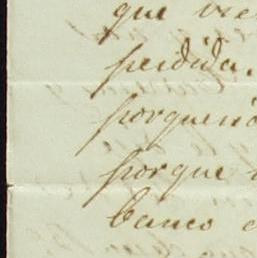 que vie
perdida.
porque no
porque
banco